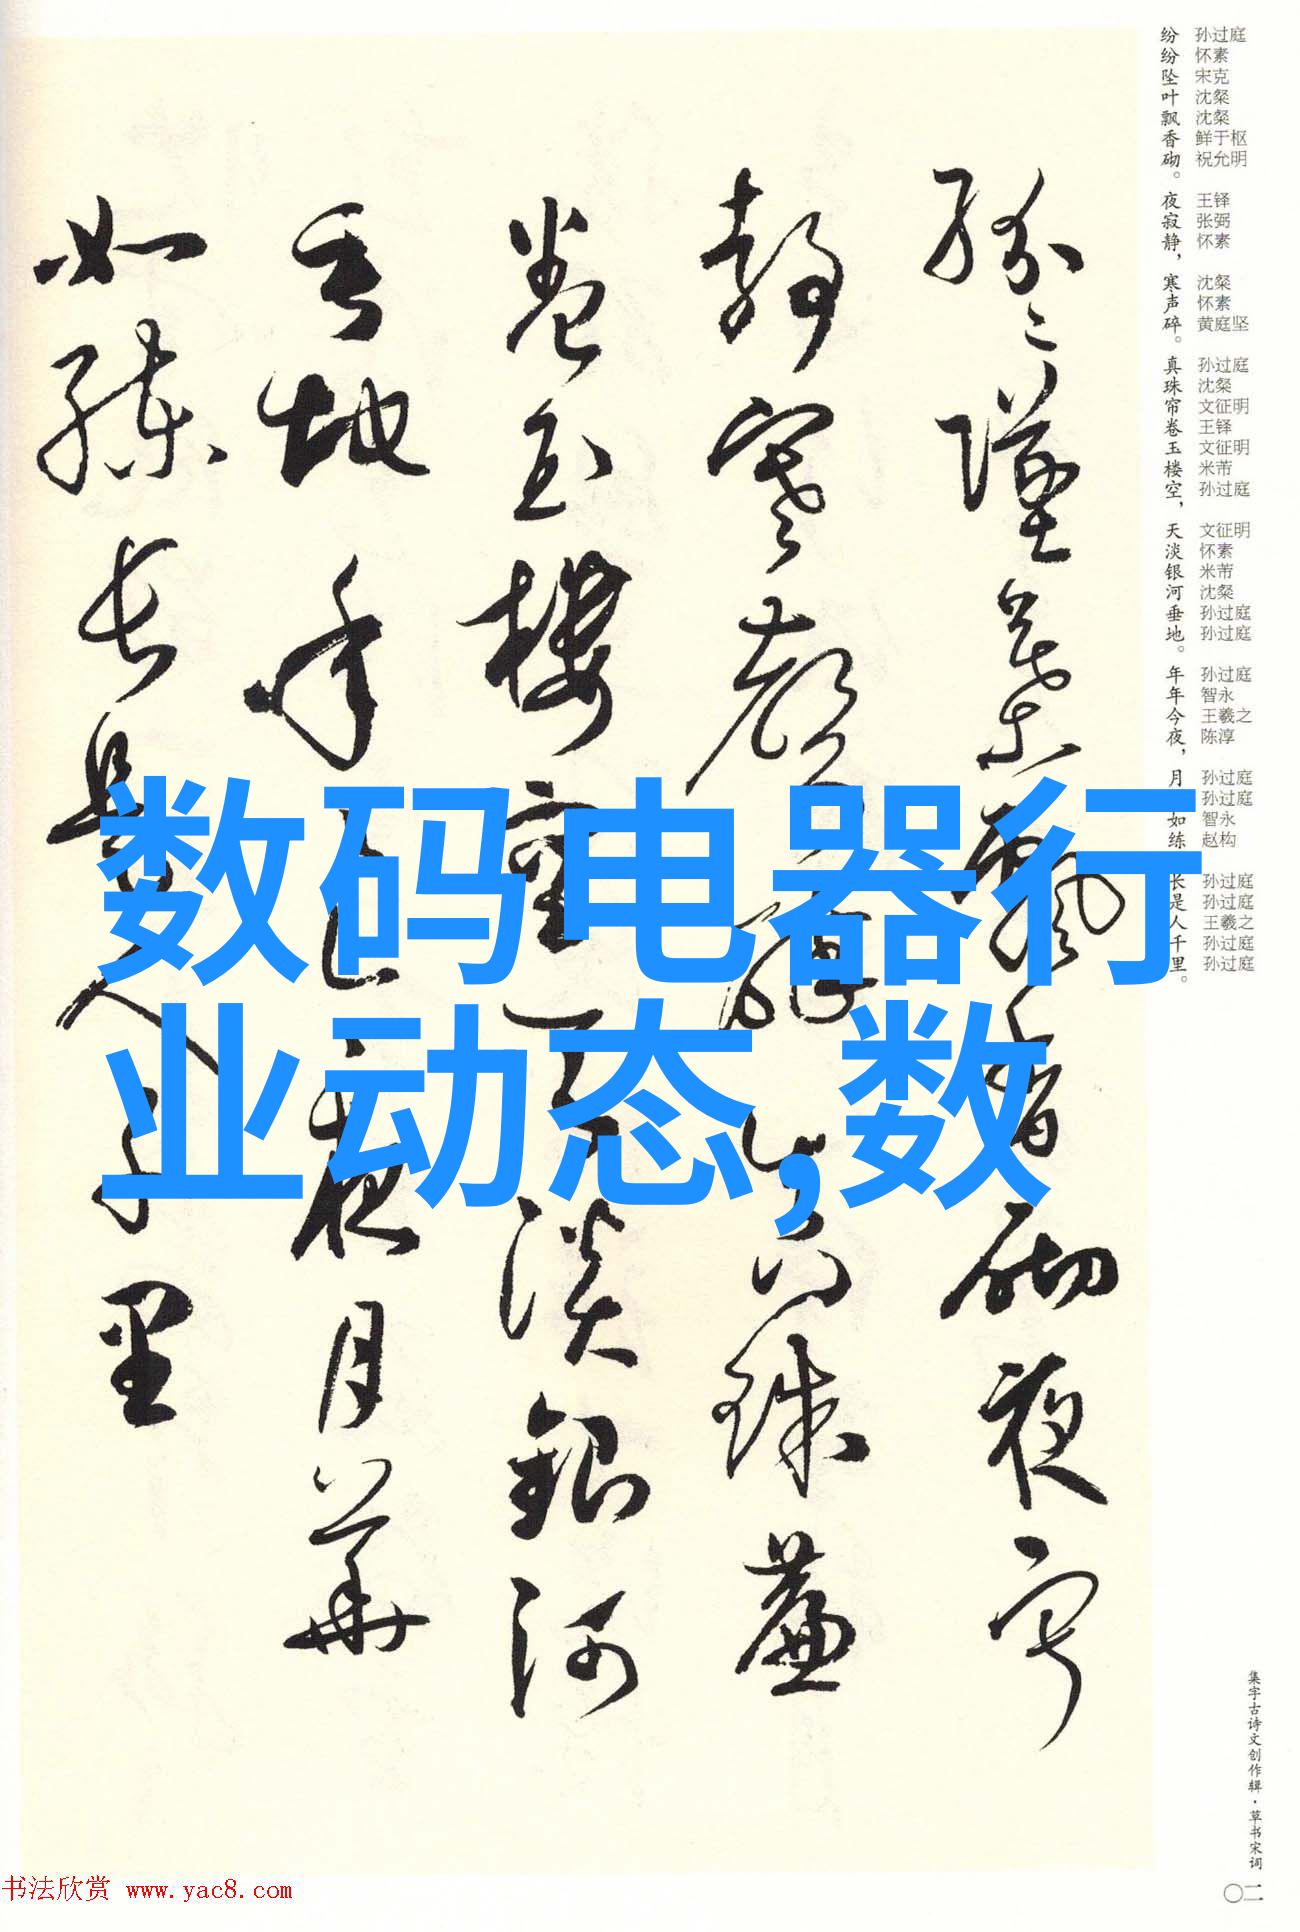 数码电器行
业动态,数
孙过庭 怀素 宋克 沈粲 沈粲 鲜于枢 祝允明 王铎 张弼 怀素 沈粲 怀素 黄庭坚 孙过庭 沈粲 文征明 王铎 文征明 米芾 孙过庭 文征明 怀素 米芾 沈粲 孙过庭 孙过庭 孙过庭 智永 王羲之 陈淳 孙过庭 孙过庭 智永 赵构 孙过庭 孙过庭 王羲之 孙过庭 孙过庭
纷纷坠叶飘香砌。夜寂静，寒声碎。真珠帘卷玉楼空，天淡银河垂地。年年今夜，月如练长是人千里。
紛々墜葉飄香砌夜寂
靜寒聲碎真珠簾
卷玉樓空天淡銀河
垂地年々今夜月華
如練長是人千里
集字古诗文创作辑·草书宋词
〇二
书法欣赏 www.yac8.com